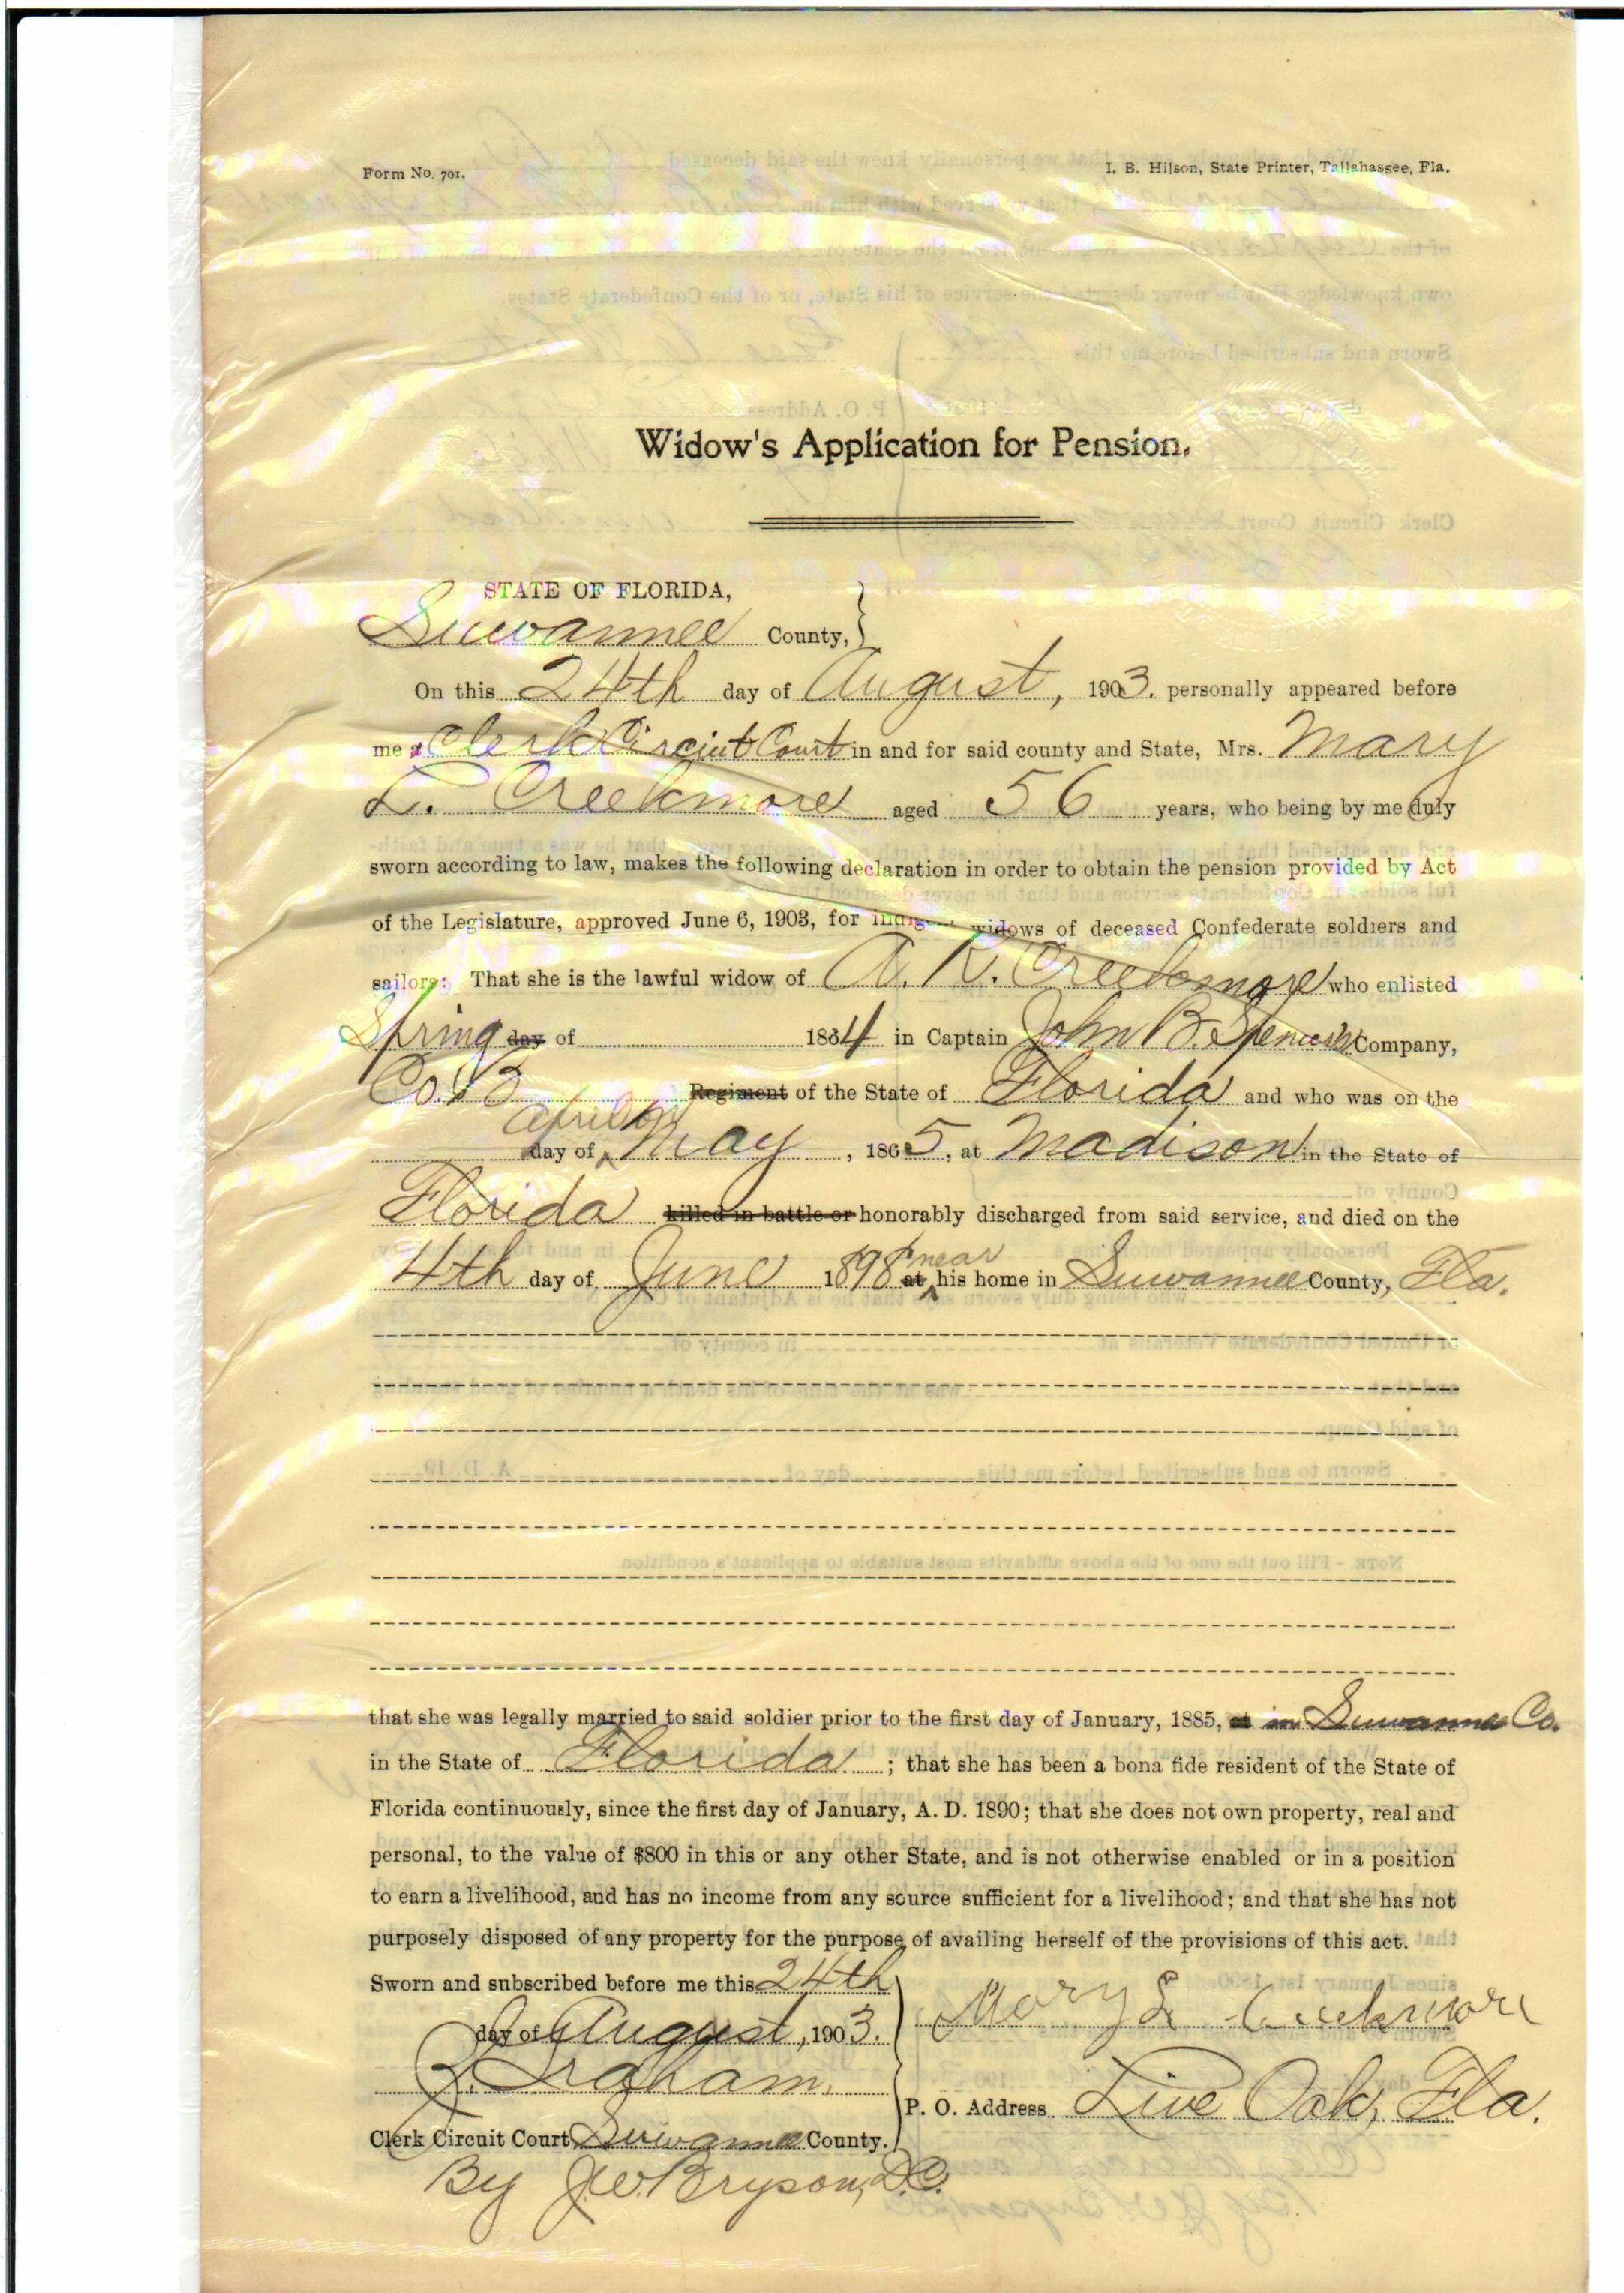 Form No. 701.
I. B. Hilson, State Printer, Tallahassee, Fla.
Widow's Application for Pension.
STATE OF FLORIDA,
Suwannee County,
On this 24th day of August, 1903. personally appeared before
me a Clerk Circuit Court in and for said county and State, Mrs. Mary
L. Creekmore aged 56 years, who being by me duly
sworn according to law, makes the following declaration in order to obtain the pension provided by Act
of the Legislature, approved June 6, 1903, for indigent widows of deceased Confederate soldiers and
sailors: That she is the lawful widow of A. R. Creekmore who enlisted
Spring day of 1864 in Captain John B. Spencer's Company,
Co. B Regiment of the State of Florida and who was on the
April or
day of May, 1865, at Madison in the State of
Florida killed in battle or honorably discharged from said service, and died on the
near
4th day of June 1898 at his home in Suwannee County, Fla.
that she was legally married to said soldier prior to the first day of January, 1885, at in Suwannee Co.
in the State of Florida ; that she has been a bona fide resident of the State of
Florida continuously, since the first day of January, A. D. 1890; that she does not own property, real and
personal, to the value of $800 in this or any other State, and is not otherwise enabled or in a position
to earn a livelihood, and has no income from any source sufficient for a livelihood; and that she has not
purposely disposed of any property for the purpose of availing herself of the provisions of this act.
Sworn and subscribed before me this 24th
day of August, 1903.
Mary L Creekmore
Graham.
P. O. Address Live Oak, Fla.
Clerk Circuit Court Suwannee County.
By J W Bryson, D.C.